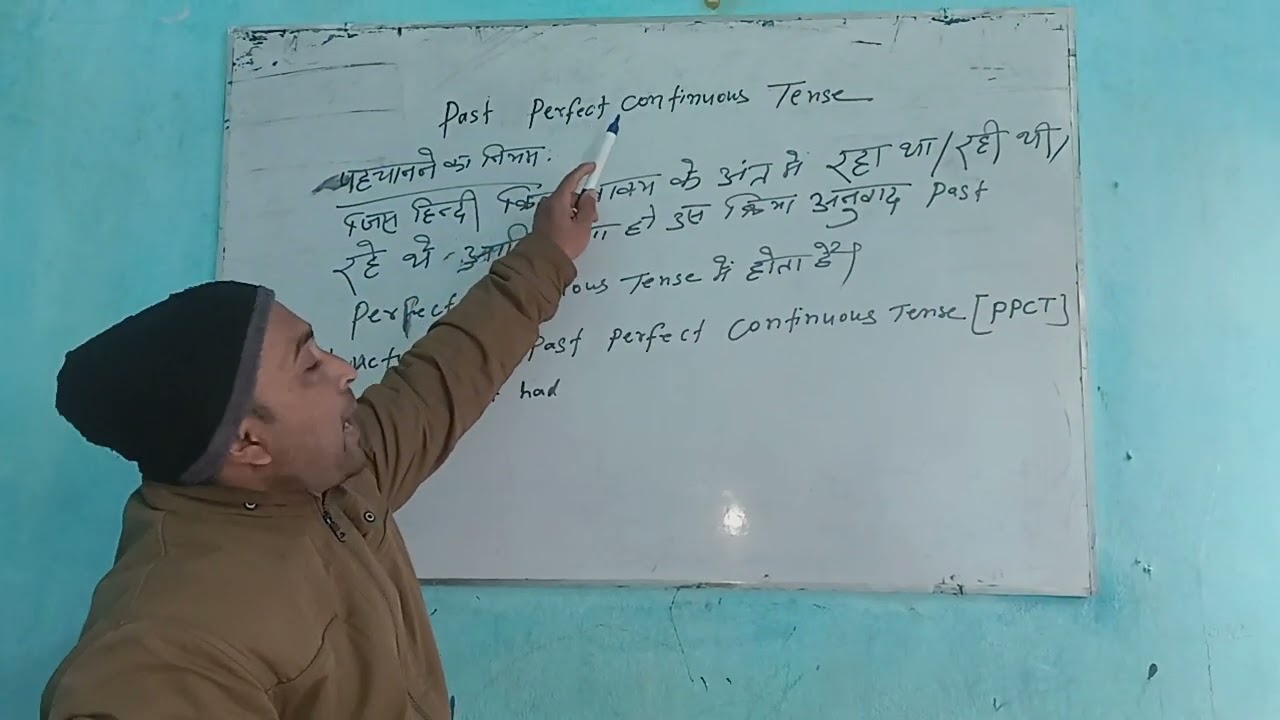 Past Perfect Continuous Tense
पहचानने का नियम:
जिस हिन्दी के अंत में रहा था/रही थी/
रहे थे हो उस क्रिया अनुवाद Past
Perfect Tense में होता है।
Past Perfect Continuous Tense [PPCT]
had